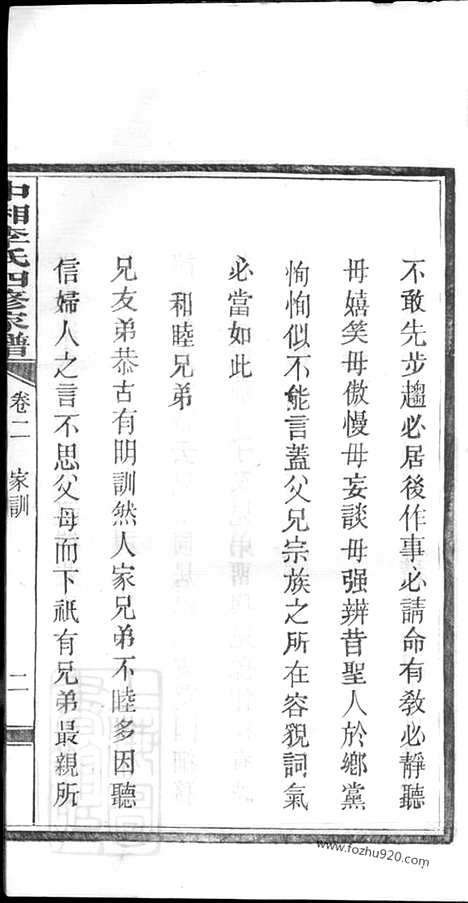 不敢先步趨必居後作事必請命有教必靜聽
毋嬉笑毋傲慢毋妄談毋强辨昔聖人於鄉黨
恂恂似不能言蓋父兄宗族之所在容貌詞氣
必當如此
和睦兄弟
兄友弟恭古有明訓然人家兄弟不睦多因聽
信婦人之言不思父母而下祇有兄弟最親所
中湘李氏四修家譜
卷二
家訓
二
www.fozhu920.com